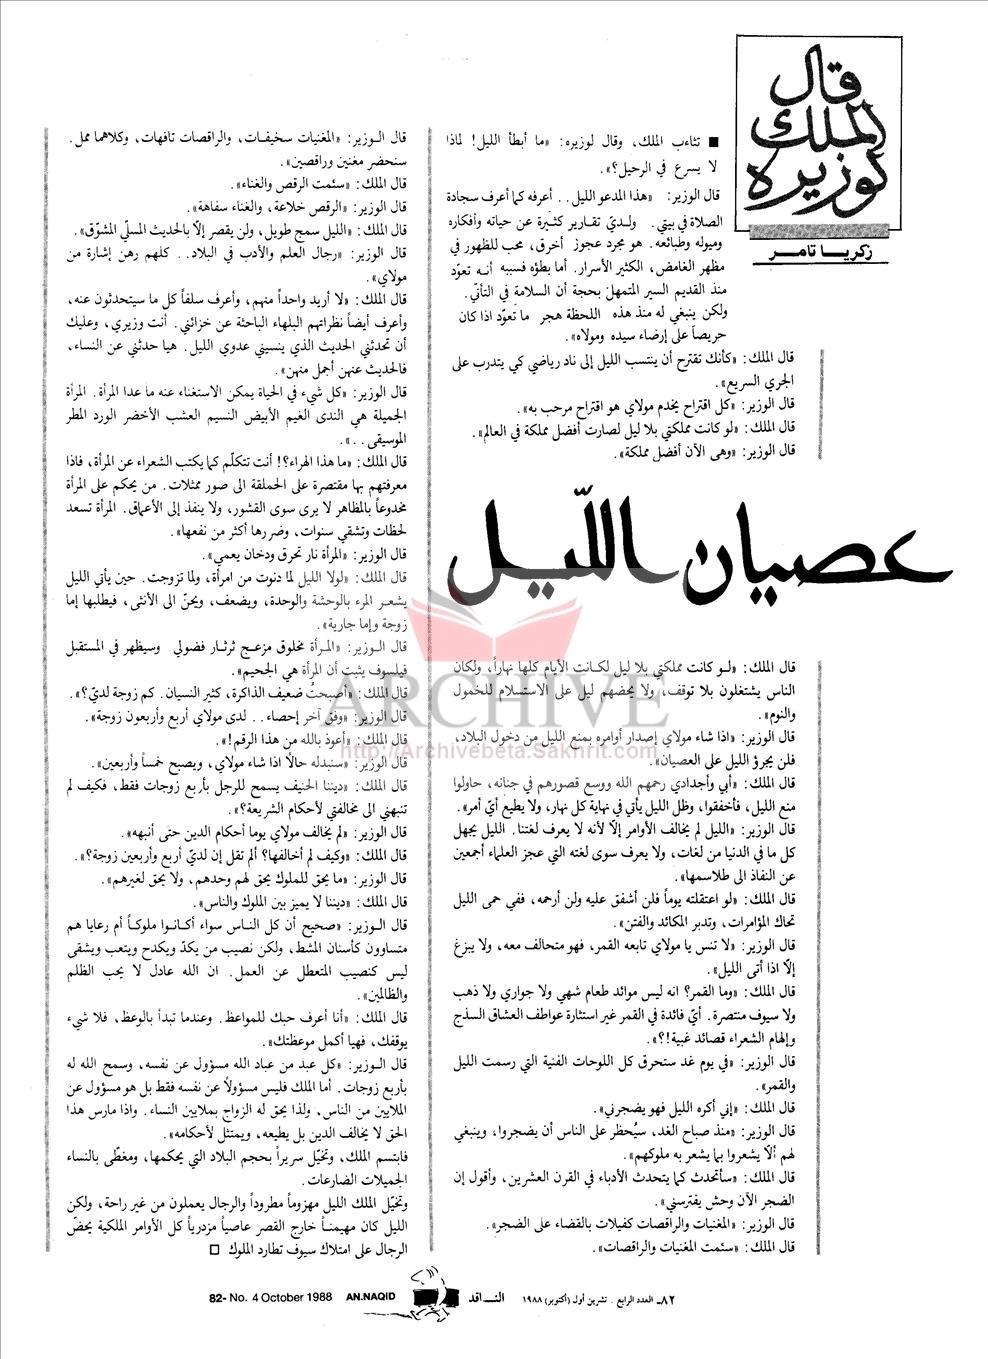 قال
الملك
لوزيره
زكريا تامر
■ تثاءب الملك، وقال لوزيره: «ما أبطأ الليل! لماذا
لا يسرع في الرحيل؟».
قال الوزير: «هذا المدعو الليل.. أعرفه كما أعرف سجادة
الصلاة في بيتي. ولديّ تقارير كثيرة عن حياته وأفكاره
وميوله وطبائعه. هو مجرد عجوز أخرق، محب للظهور في
مظهر الغامض، الكثير الأسرار. أما بطؤه فسببه أنه تعوّد
منذ القديم السير المتمهل بحجة أن السلامة في التأنّي.
ولكن ينبغي له منذ هذه اللحظة هجر ما تعوّد اذا كان
حريصاً على إرضاء سيده ومولاه».
قال الملك: «كأنك تقترح أن ينتسب الليل إلى ناد رياضي كي يتدرب على
الجري السريع».
قال الوزير: «كل اقتراح يخدم مولاي هو اقتراح مرحب به».
قال الملك: «لو كانت مملكتي بلا ليل لصارت أفضل مملكة في العالم».
قال الوزير: «وهى الآن أفضل مملكة».
عصيان الليل
قال الملك: «لو كانت مملكتي بلا ليل لكانت الأيام كلها نهاراً، ولكان
الناس يشتغلون بلا توقف، ولا يحضهم ليل على الاستسلام للخمول
والنوم».
قال الوزير: «اذا شاء مولاي إصدار أوامره بمنع الليل من دخول البلاد،
فلن يجرؤ الليل على العصيان».
قال الملك: «أبي وأجدادي رحمهم الله ووسع قصورهم في جنانه، حاولوا
منع الليل، فأخفقوا، وظل الليل يأتي في نهاية كل نهار، ولا يطيع أيّ أمر».
قال الوزير: «الليل لم يخالف الأوامر إلّا لأنه لا يعرف لغتنا. الليل يجهل
كل ما في الدنيا من لغات، ولا يعرف سوى لغته التي عجز العلماء أجمعين
عن النفاذ الى طلاسمها».
قال الملك: «لو اعتقلته يوماً فلن أشفق عليه ولن أرحمه، ففي حمى الليل
تحاك المؤامرات، وتدبر المكائد والفتن».
قال الوزير: «لا تنس يا مولاي تابعه القمر، فهو متحالف معه، ولا يبزغ
إلّا اذا أتى الليل».
قال الملك: «وما القمر؟ انه ليس موائد طعام شهي ولا جواري ولا ذهب
ولا سيوف منتصرة. أيّ فائدة في القمر غير استثارة عواطف العشاق السذج
وإلهام الشعراء قصائد غبية!؟».
قال الوزير: «في يوم غد ستحرق كل اللوحات الفنية التي رسمت الليل
والقمر».
قال الملك: «إني أكره الليل فهو يضجرني».
قال الوزير: «منذ صباح الغد، سيُحظر على الناس أن يضجروا، وينبغي
لهم ألّا يشعروا بما يشعر به ملوكهم».
قال الملك: «سأتحدث كما يتحدث الأدباء في القرن العشرين، وأقول إن
الضجر الآن وحش يفترسني».
قال الوزير: «المغنيات والراقصات كفيلات بالقضاء على الضجر».
قال الملك: «سئمت المغنيات والراقصات».
قال الوزير: «المغنيات سخيفات، والراقصات تافهات، وكلاهما ممل.
سنحضر مغنين وراقصين».
قال الملك: «سئمت الرقص والغناء».
قال الوزير: «الرقص خلاعة، والغناء سفاهة».
قال الملك: «الليل سمج طويل، ولن يقصر إلّا بالحديث المسلّي المشوّق».
قال الوزير: «رجال العلم والأدب في البلاد.. كلهم رهن إشارة من
مولاي».
قال الملك: «لا أريد واحداً منهم، وأعرف سلفاً كل ما سيتحدثون عنه،
وأعرف أيضاً نظراتهم البلهاء الباحثة عن خزائني. أنت وزيري، وعليك
أن تحدثني الحديث الذي ينسيني عدوي الليل. هيا حدثني عن النساء،
فالحديث عنهن أجمل منهن».
قال الوزير: «كل شيء في الحياة يمكن الاستغناء عنه ما عدا المرأة. المرأة
الجميلة هي الندى الغيم الأبيض النسيم العشب الأخضر الورد المطر
الموسيقى..».
قال الملك: «ما هذا الهراء؟! أنت تتكلّم كما يكتب الشعراء عن المرأة، فاذا
معرفتهم بها مقتصرة على الحملقة الى صور ممثلات. من يحكم على المرأة
مخدوعاً بالمظاهر لا يرى سوى القشور، ولا ينفذ إلى الأعماق. المرأة تسعد
لحظات وتشقي سنوات، وضررها أكثر من نفعها».
قال الوزير: «المرأة نار تحرق ودخان يعمي».
قال الملك: «لولا الليل لما دنوت من امرأة، ولما تزوجت. حين يأتي الليل
يشعر المرء بالوحشة والوحدة، ويضعف، ويحنّ الى الأنثى، فيطلبها إما
زوجة وإما جارية».
قال الوزير: «المرأة مخلوق مزعج ثرثار فضولي وسيظهر في المستقبل
فيلسوف يثبت أن المرأة هي الجحيم».
قال الملك: «أصبحتُ ضعيف الذاكرة، كثير النسيان. كم زوجة لديّ؟».
قال الوزير: «وفق آخر إحصاء.. لدى مولاي أربع وأربعون زوجة».
قال الملك: «أعوذ بالله من هذا الرقم!».
قال الوزير: «سنبدله حالاً اذا شاء مولاي، ويصبح خمساً وأربعين».
قال الملك: «ديننا الحنيف يسمح للرجل بأربع زوجات فقط، فكيف لم
تنبهني الى مخالفتي لأحكام الشريعة؟».
قال الوزير: «لم يخالف مولاي يوما أحكام الدين حتى أنبهه».
قال الملك: «وكيف لم أخالفها؟ ألم تقل إن لديّ أربع وأربعين زوجة؟».
قال الوزير: «ما يحق للملوك يحق لهم وحدهم، ولا يحق لغيرهم».
قال الملك: «ديننا لا يميز بين الملوك والناس».
قال الوزير: «صحيح أن كل الناس سواء أكانوا ملوكاً أم رعايا هم
متساوون كأسنان المشط، ولكن نصيب من يكدّ ويكدح ويتعب ويشقى
ليس كنصيب المتعطل عن العمل. ان الله عادل لا يحب الظلم
والظالمين».
قال الملك: «أنا أعرف حبك للمواعظ. وعندما تبدأ بالوعظ، فلا شيء
يوقفك، فهيا أكمل موعظتك».
قال الوزير: «كل عبد من عباد الله مسؤول عن نفسه، وسمح الله له
بأربع زوجات. أما الملك فليس مسؤولاً عن نفسه فقط بل هو مسؤول عن
الملايين من الناس، ولذا يحق له الزواج بملايين النساء. واذا مارس هذا
الحق لا يخالف الدين بل يطيعه، ويمتثل لأحكامه».
فابتسم الملك، وتخيّل سريراً بحجم البلاد التي يحكمها، ومغطّى بالنساء
الجميلات الضارعات.
وتخيّل الملك الليل مهزوماً مطروداً والرجال يعملون من غير راحة، ولكن
الليل كان مهيمناً خارج القصر عاصياً مزدرياً كل الأوامر الملكية يحضّ
الرجال على امتلاك سيوف تطارد الملوك □
ARCHIVE
http://Archivebeta.Sakhrit.com
82- No. 4 October 1988 AN.NAQID الناقد ٨٢ـ العدد الرابع. تشرين أول (أكتوبر) ١٩٨٨